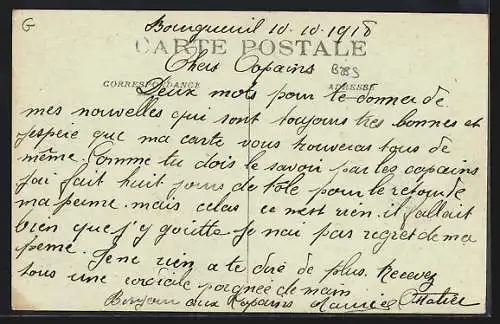 G
Bourgueuil 10.10.1918
CARTE POSTALE
Chers Copains
B289
CORRESPONDANCE
ADRESSE
Deux mots pour te donner de
mes nouvelles qui sont toujours tres bonnes et
j'espere que ma carte vous trouveras tous de
même. Comme tu dois le savoir par les copains
j'ai fait huit jours de tôle pour le retour de
ma perme. mais celas ce n'est rien. il fallait
bien que j'y goutte je n'ai pas regret de ma
perme. Je ne rien a te dire de plus. Recevez
tous une cordiale poignée de main
Bonjour aux Copains Maurice